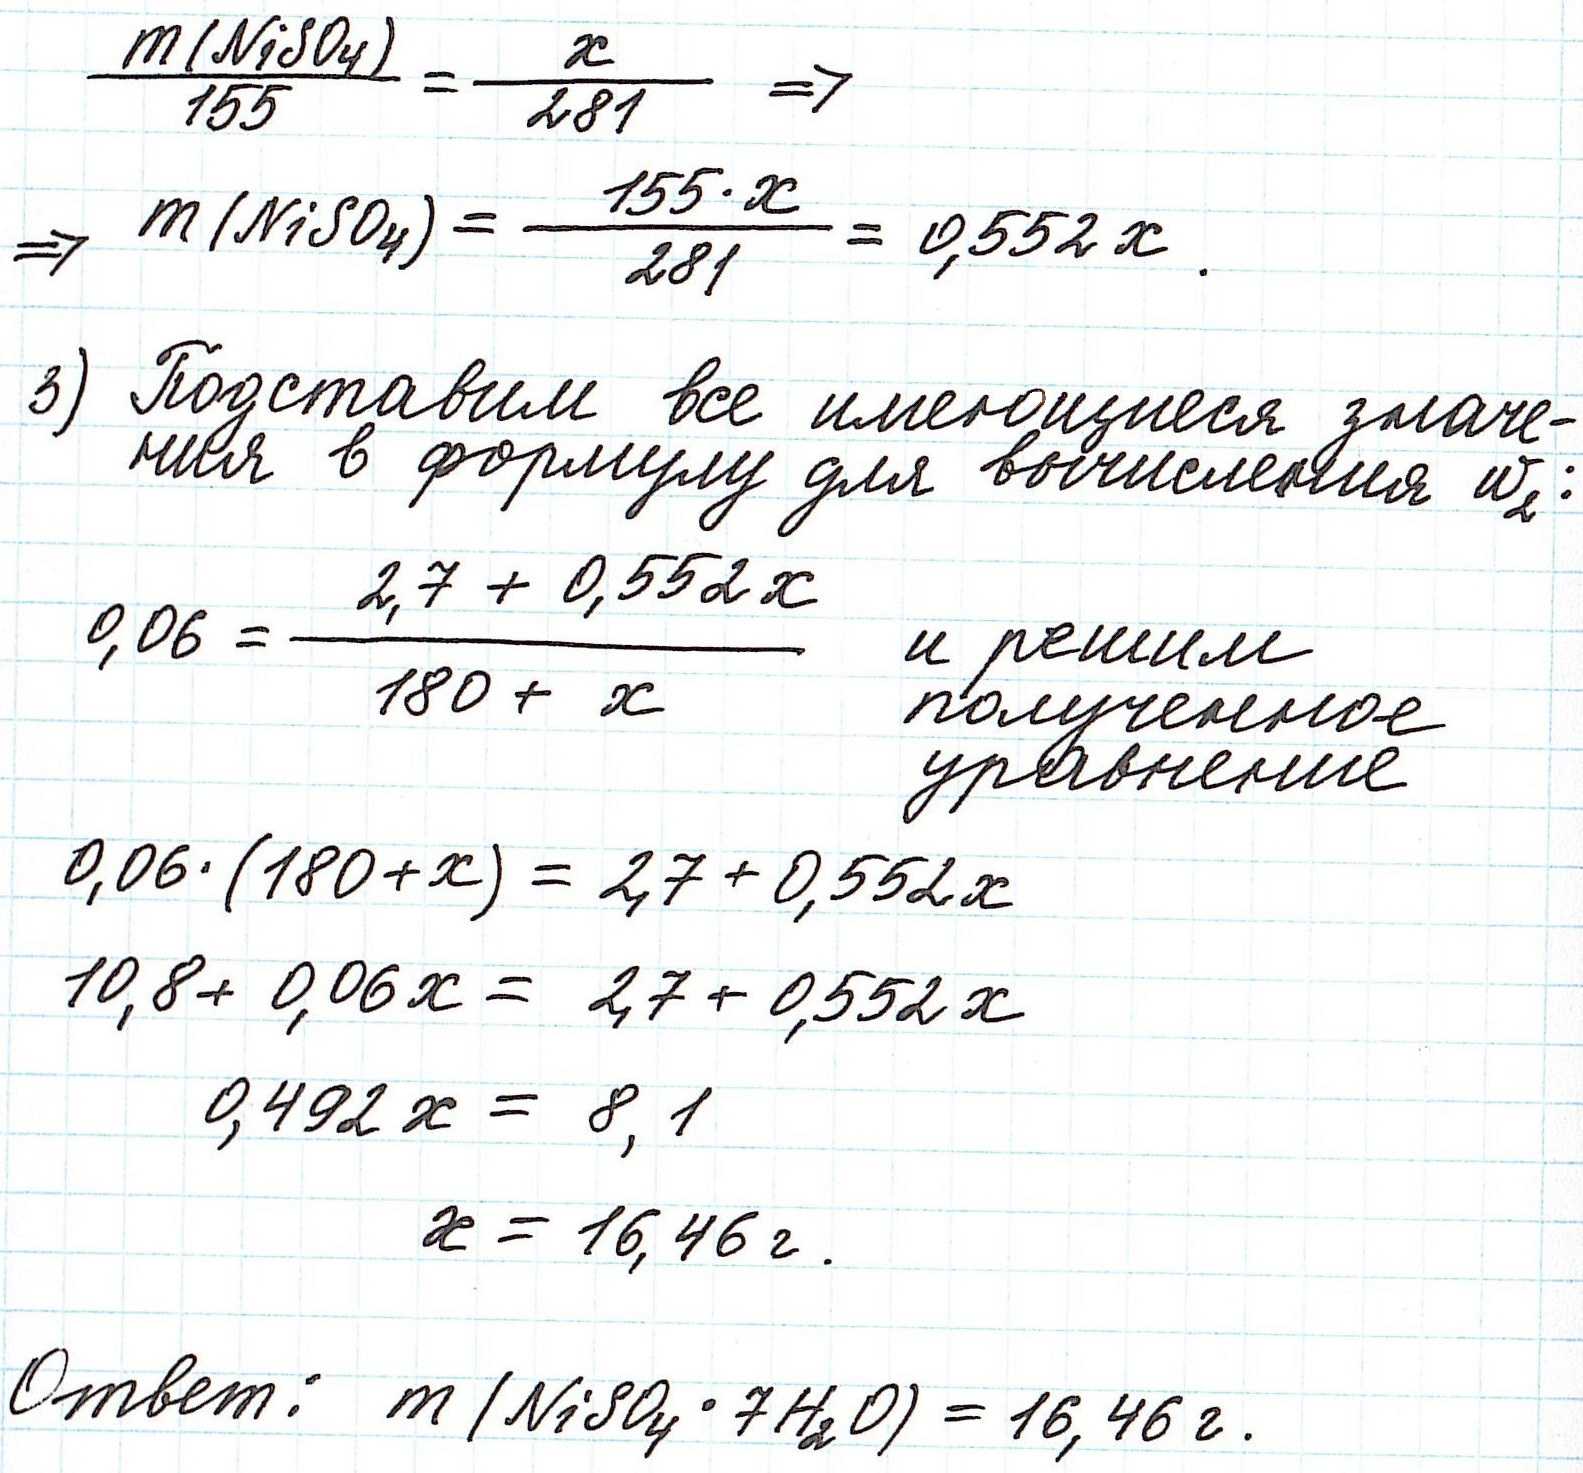 m(NiSO₄)/155 = x/281 =>
=> m(NiSO₄) = 155·x/281 = 0,552x.
3) Подставим все имеющиеся значе-
ния в формулу для вычисления w₂:
0,06 = (2,7 + 0,552x)/(180 + x) и решим
полученное
уравнение
0,06·(180+x) = 2,7+0,552x
10,8+ 0,06x = 2,7+0,552x
0,492x = 8,1
x = 16,46 г.
Ответ: m(NiSO₄·7H₂O) = 16,46 г.